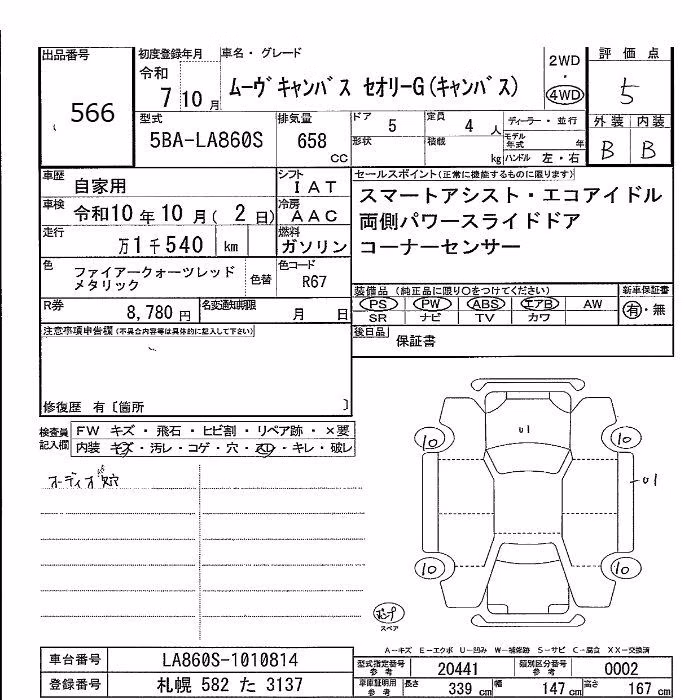 出品番号 初度登録年月 車名・グレード 2WD 評価点
566 令和 7 10月 ムーヴキャンバス セオリーG(キャンバス) ・ 4WD 5
型式 排気量 ドア 5 定員 4人 ディーラー・並行 外装 内装
5BA-LA860S 658 CC 形状 積載 kg モデル年式 年 ハンドル 左・右 B B
車歴 自家用 シフト IAT セールスポイント(正常に機能するものに限ります)
車検 令和10年10月(2日) 冷房 AAC スマートアシスト・エコアイドル
両側パワースライドドア
走行 万1千540 km 燃料 ガソリン コーナーセンサー
色 ファイアークォーツレッド
メタリック 色替 色コード R67
装備品(純正品に限り○をつけてください) 新車保証書
PS PW ABS エアB AW 有・無
SR ナビ TV カワ
R券 8,780円 名変通知期限 月 日
後日品 保証書
注意事項申告欄(不具合内容等は具体的に記入して下さい)
修復歴 有〔箇所 〕
検査員記入欄 FW キズ・飛石・ヒビ割・リペア跡・×要
内装 キズ・汚レ・コゲ・穴・・キレ・破レ
オーディオ
U1
10 10
U1
10 10
スペア
A-キズ E-エクボ U-凹み W-補修跡 S-サビ C-腐立 XX-交換済
車台番号 LA860S-1010814 型式指定番号参考 20441 類別区分番号参考 0002
登録番号 札幌 582 た 3137 車庫証明用参考 長さ 339 cm 幅 147 cm 高さ 167 cm